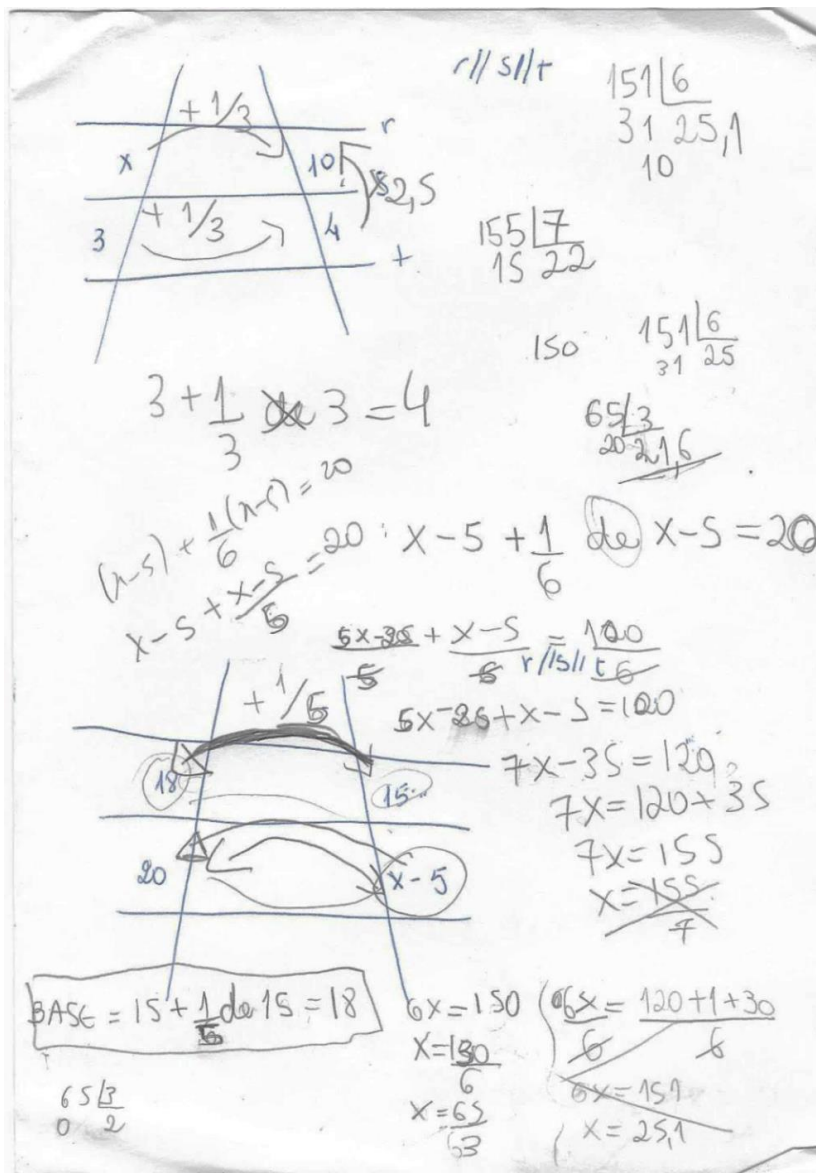 r//s//t
151 6
31 25,1
10
+ 1/3
r
x
10
3
+ 1/3
4
2,5
t
155 7
15 22
150
151 6
31 25
3 + 1/3 de 3 = 4
65 3
20 21,6
(x-5) + 1/6 (x-5) = 20
x-5 + x-5/5 = 20
x-5 + 1/6 de x-5 = 20
5x-25/5 + x-5/5 = 100/6
r//s//t
+ 1/5
5x-25+x-5=100
18
15
7x-35=120
7x=120+35
20
x-5
7x=155
x=155/7
BASE = 15 + 1/5 de 15 = 18
6x=150
x=130/6
x=65/3
6x/6 = 120+1+30/6
6x=151
x=25,1
65 3
0 2